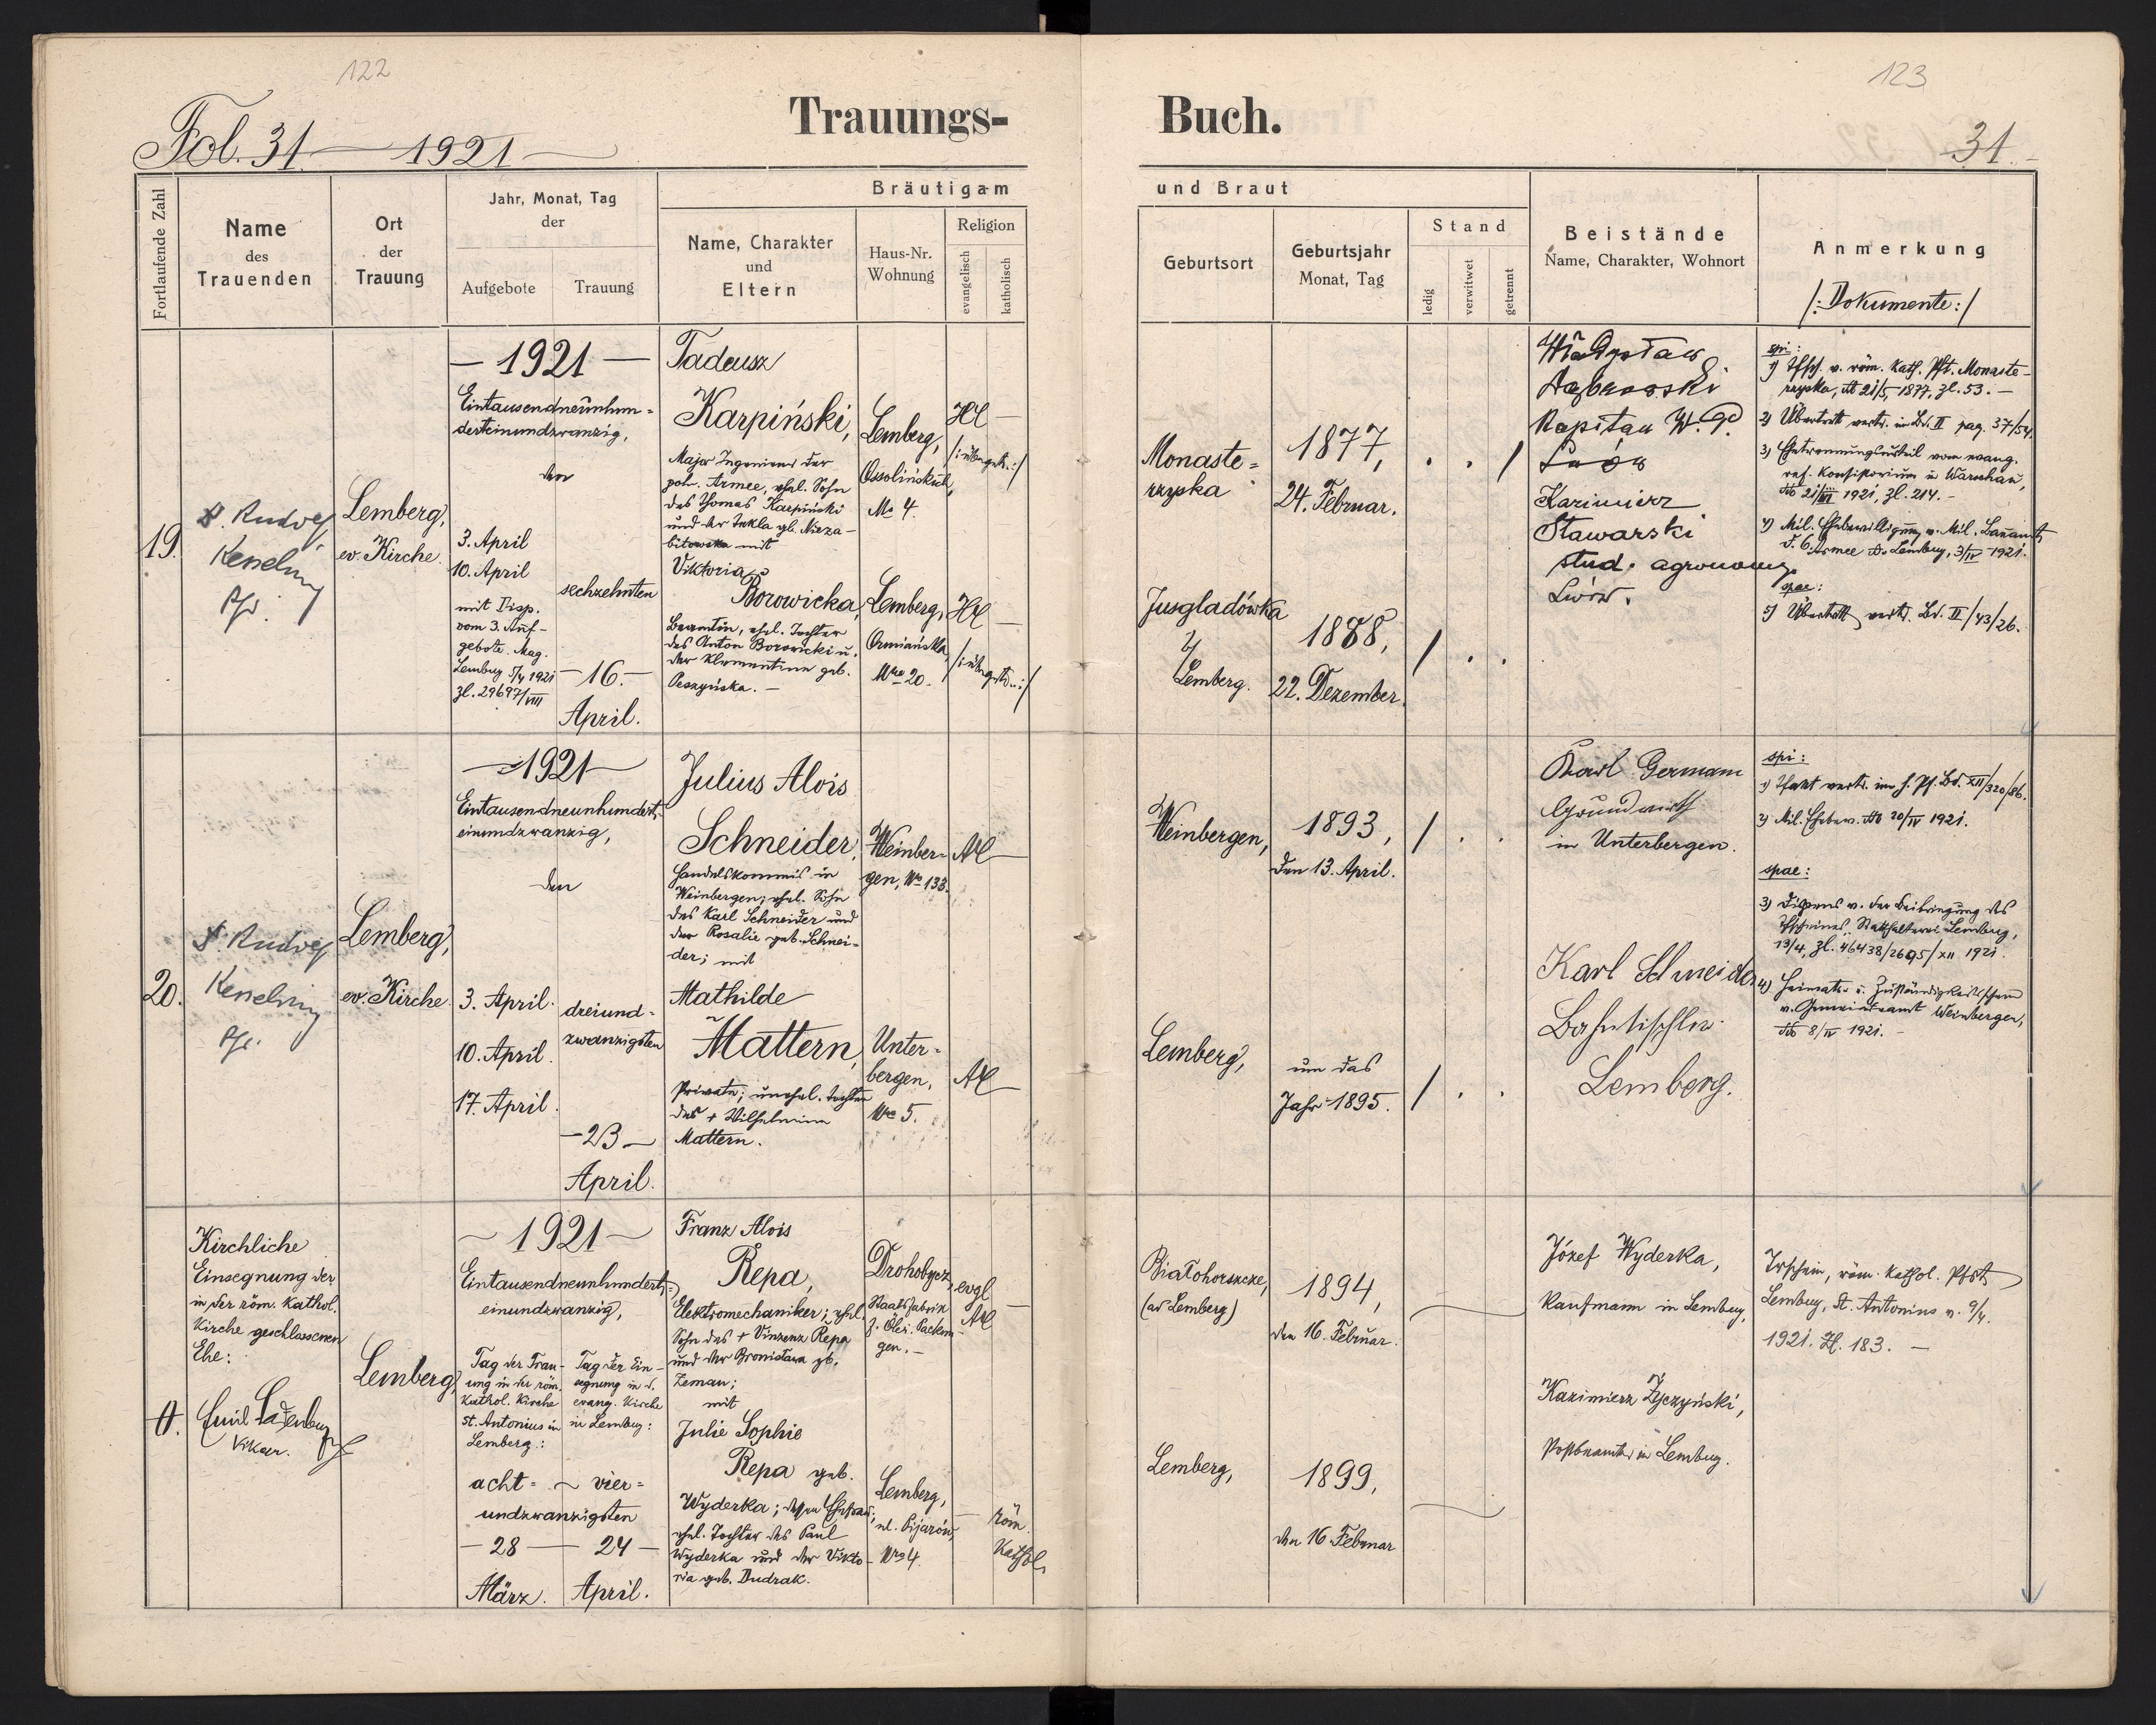 122
Trauungs-
Fol. 31 — 1921 —
Fortlaufende Zahl
Name
des
Trauenden
Ort
der
Trauung
Jahr, Monat, Tag
der
Aufgebote
Trauung
Bräutigam
Name, Charakter
und
Eltern
Haus-Nr.
Wohnung
Religion
evangelisch
katholisch
19.
Lemberg,
ev. Kirche
— 1921 —
Eintausendneunhun=
derteinundzwanzig,
den
3. April
10. April
mit Disp.
vom 3. Auf-
gebote. Mag.
Lemberg 5/4 1921
Zl. 29697/VIII
sechzehnten
— 16. —
April.
Tadeusz
Karpiński,
Major Ingenieur der
poln. Armee, ehel. Sohn
des Thomas Karpiński
und der Tekla gb. Nieza-
bitowska mit
Viktoria
Borowicka,
Beamtin, ehel. Tochter
des Anton Borowicki u.
der Klementine geb.
Peszyńska. —
Lemberg,
Ossolińskich,
No 4.
Lemberg,
Ormiańska,
Nro 20.
HC —
/: übergetr. :/
HC —
/: übergetr. :/
20.
Lemberg,
ev. Kirche
— 1921 —
Eintausendneunhundert-
einundzwanzig,
den
3. April
10. April
17. April
dreiund-
zwanzigsten
— 23 —
April.
Julius Alois
Schneider,
Handelskommis in
Weinbergen; ehel. Sohn
des Karl Schneider und
der Rosalie geb. Schnei-
der; mit
Mathilde
Mattern,
Private; unehel. Tochter
der + Wilhelmine
Mattern.
Weinber-
gen, No 133.
Unter-
bergen,
Nro 5.
AC —
AC —
Kirchliche
Einsegnung der
in der röm. kathol.
Kirche geschlossenen
Ehe:
0.
Emil Ladenberger
Vikar.
Lemberg,
~ 1921 ~
Eintausendneunhundert-
einundzwanzig,
Tag der Trau-
ung in der röm.
kathol. Kirche
St. Antonius in
Lemberg:
Tag der Ein-
segnung in d.
evang. Kirche
in Lemberg:
acht= ~ vier=
undzwanzigsten
— 28 — 24 —
März. April.
Franz Alois
Repa,
Elektromechaniker; ehel.
Sohn des + Vinzenz Repa
und der Bronisława gb.
Zeman;
mit
Julie Sophie
Repa geb.
Wyderka; dessen Ehefrau;
ehel. Tochter des Paul
Wyderka und der Vikto-
ria geb. Dudrak.
Drohobycz,
Staatsfabrik
gen. —
Lemberg,
ul. Pijarów,
Nro 4.
evgl
AC
röm.
kathol.
123
Buch.
31.
und Braut
Geburtsort
Geburtsjahr
Monat, Tag
Stand
ledig
verwitwet
getrennt
Beistände
Name, Charakter, Wohnort
Anmerkung
/: Dokumente :/
Monaste=
rzyska
1877,
24. Februar.
. . /
Lemberg.
1888,
22. Dezember.
/ . .
Władysław
Dąbrowski
Kapitan W. P.
Lwów
Kazimierz
Stawarski
stud. agronomy.
Lwów.
spi:
1) Tfsch. v. röm. kath. Pft. Monaste-
rzyska, dto 21/5 1877, Zl. 53. —
2) Übertritt verts. im Bd. II pag. 37/54.
3) Ehetrennungsurteil vom evang.
ref. Konsistorium in Warschau,
1921, Zl. 214. —
4) Mil. Ehebewilligung v. Mil.
d. 6. Armee dto Lemberg, 3/IV 1921.
spae:
5) Übertritt verts. Bd. II/43/26.
Weinbergen,
1893,
den 13. April.
/ . .
Lemberg,
um das
Jahr 1895.
/ . .
Karl Germann
Grundwirth
in Unterbergen.
Karl Schneider
Bahntischler
Lemberg.
spi:
1) Tfakt verts. im h. Pf. Bd. XII/320/86.
2) Mil. Ehebew. dto 20/IV 1921.
spae:
3) Dispens v. der Beibringung des
Tfscheines, Statthalterei Lemberg,
13/4, Zl. 46438/2695/XII 1921.
4) Heimats- u. Zuständigkeitsschein
v. Gemeindeamt Weinbergen,
dto 8/IV 1921. —
Białohorszcze,
(ad Lemberg)
1894,
den 16. Februar.
Lemberg,
1899,
den 16 Februar
Józef Wyderka,
Kaufmann in Lemberg,
Kazimierz Życzyński,
Postbeamter in Lemberg.
Trschein, röm. kathol. Pfst
Lemberg, St. Antonius v. 9/4.
1921. Zl. 183. —